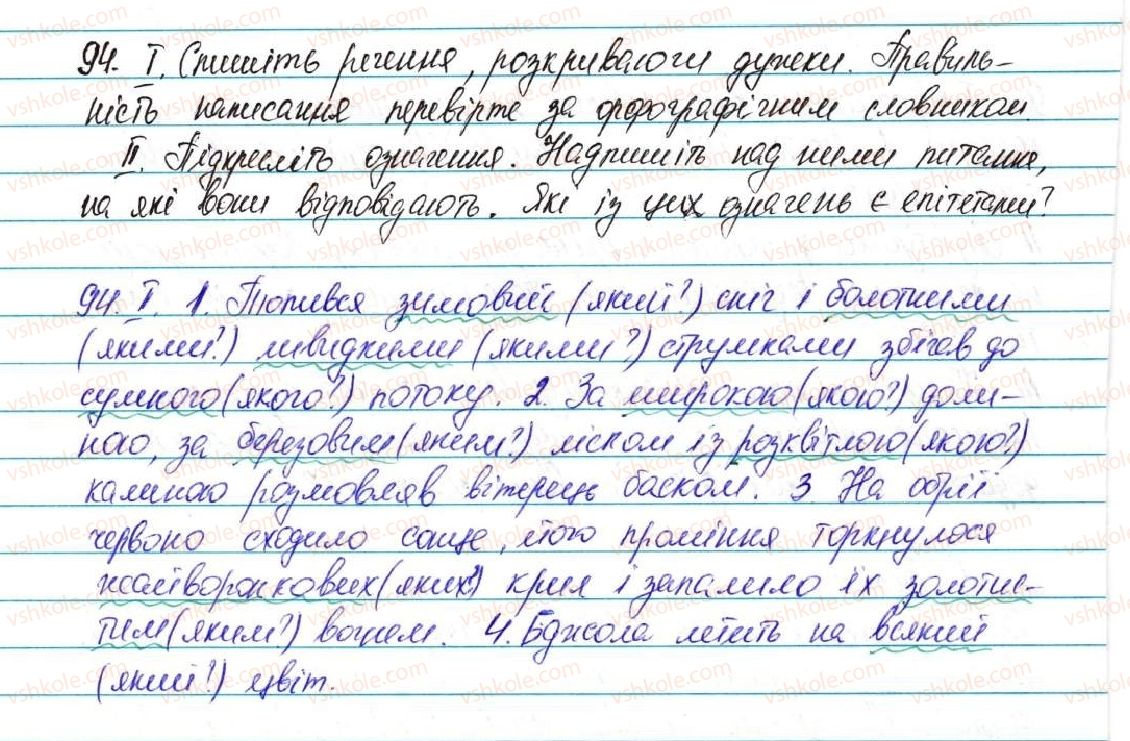 94. I. Спишіть речення, розкриваючи дужки. Правиль-
ність написання перевірте за орфографічним словником.
II. Підкресліть означення. Надпишіть над ними питання,
на які вони відповідають. Які із цих означень є епітетами?
94. I. 1. Топився зимовий (який?) сніг і болотними
(якими?) швидкими (якими?) струмками збігав до
сумного (якого?) потоку. 2. За широкою (якою?) доли-
ною, за березовим (яким?) ліском із розквітлою (якою?)
калиною розмовляв вітерець баском. 3. На обрії
червоно сходило сонце, його проміння торкнулося
жайворонкових (яких?) крил і запалило їх золотис-
тим (яким?) вогнем. 4. Бджола летить на всякий
(який?) цвіт.
vshkole.com